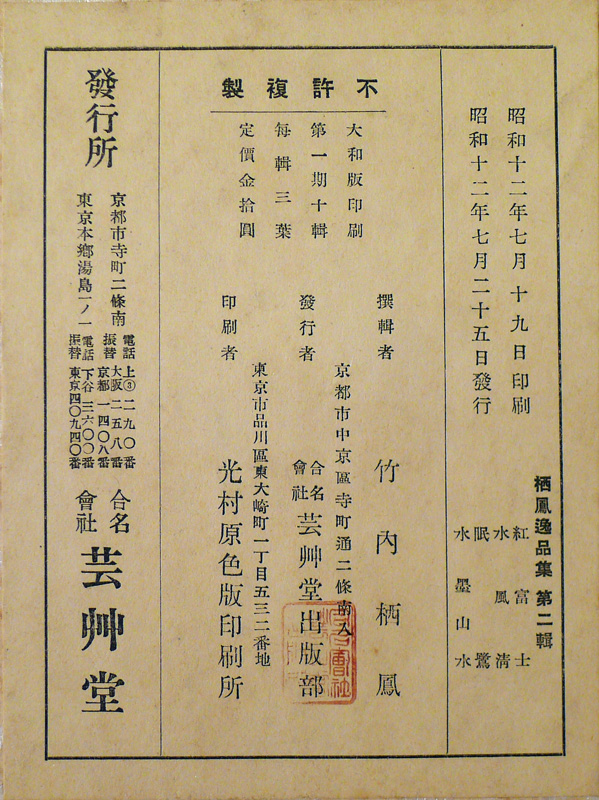 昭和十二年七月十九日印刷
昭和十二年七月二十五日發行
栖鳳逸品集 第二輯
紅富士
水風清
眠鷺
水墨山水
不許複製
大和版印刷
第一期十輯
每輯三葉
定價金拾圓
撰輯者 竹內栖鳳
京都市中京區寺町通二條南入
發行者 合名會社 芸艸堂出版部
東京市品川區東大崎町一丁目五三二番地
印刷者 光村原色版印刷所
發行所
京都市寺町二條南
電話上③二九〇番
振替大阪二五八番
京都一四〇八番
東京本鄉湯島一ノ一
電話下谷三六〇〇番
振替東京四〇九四〇番
合名會社 芸艸堂